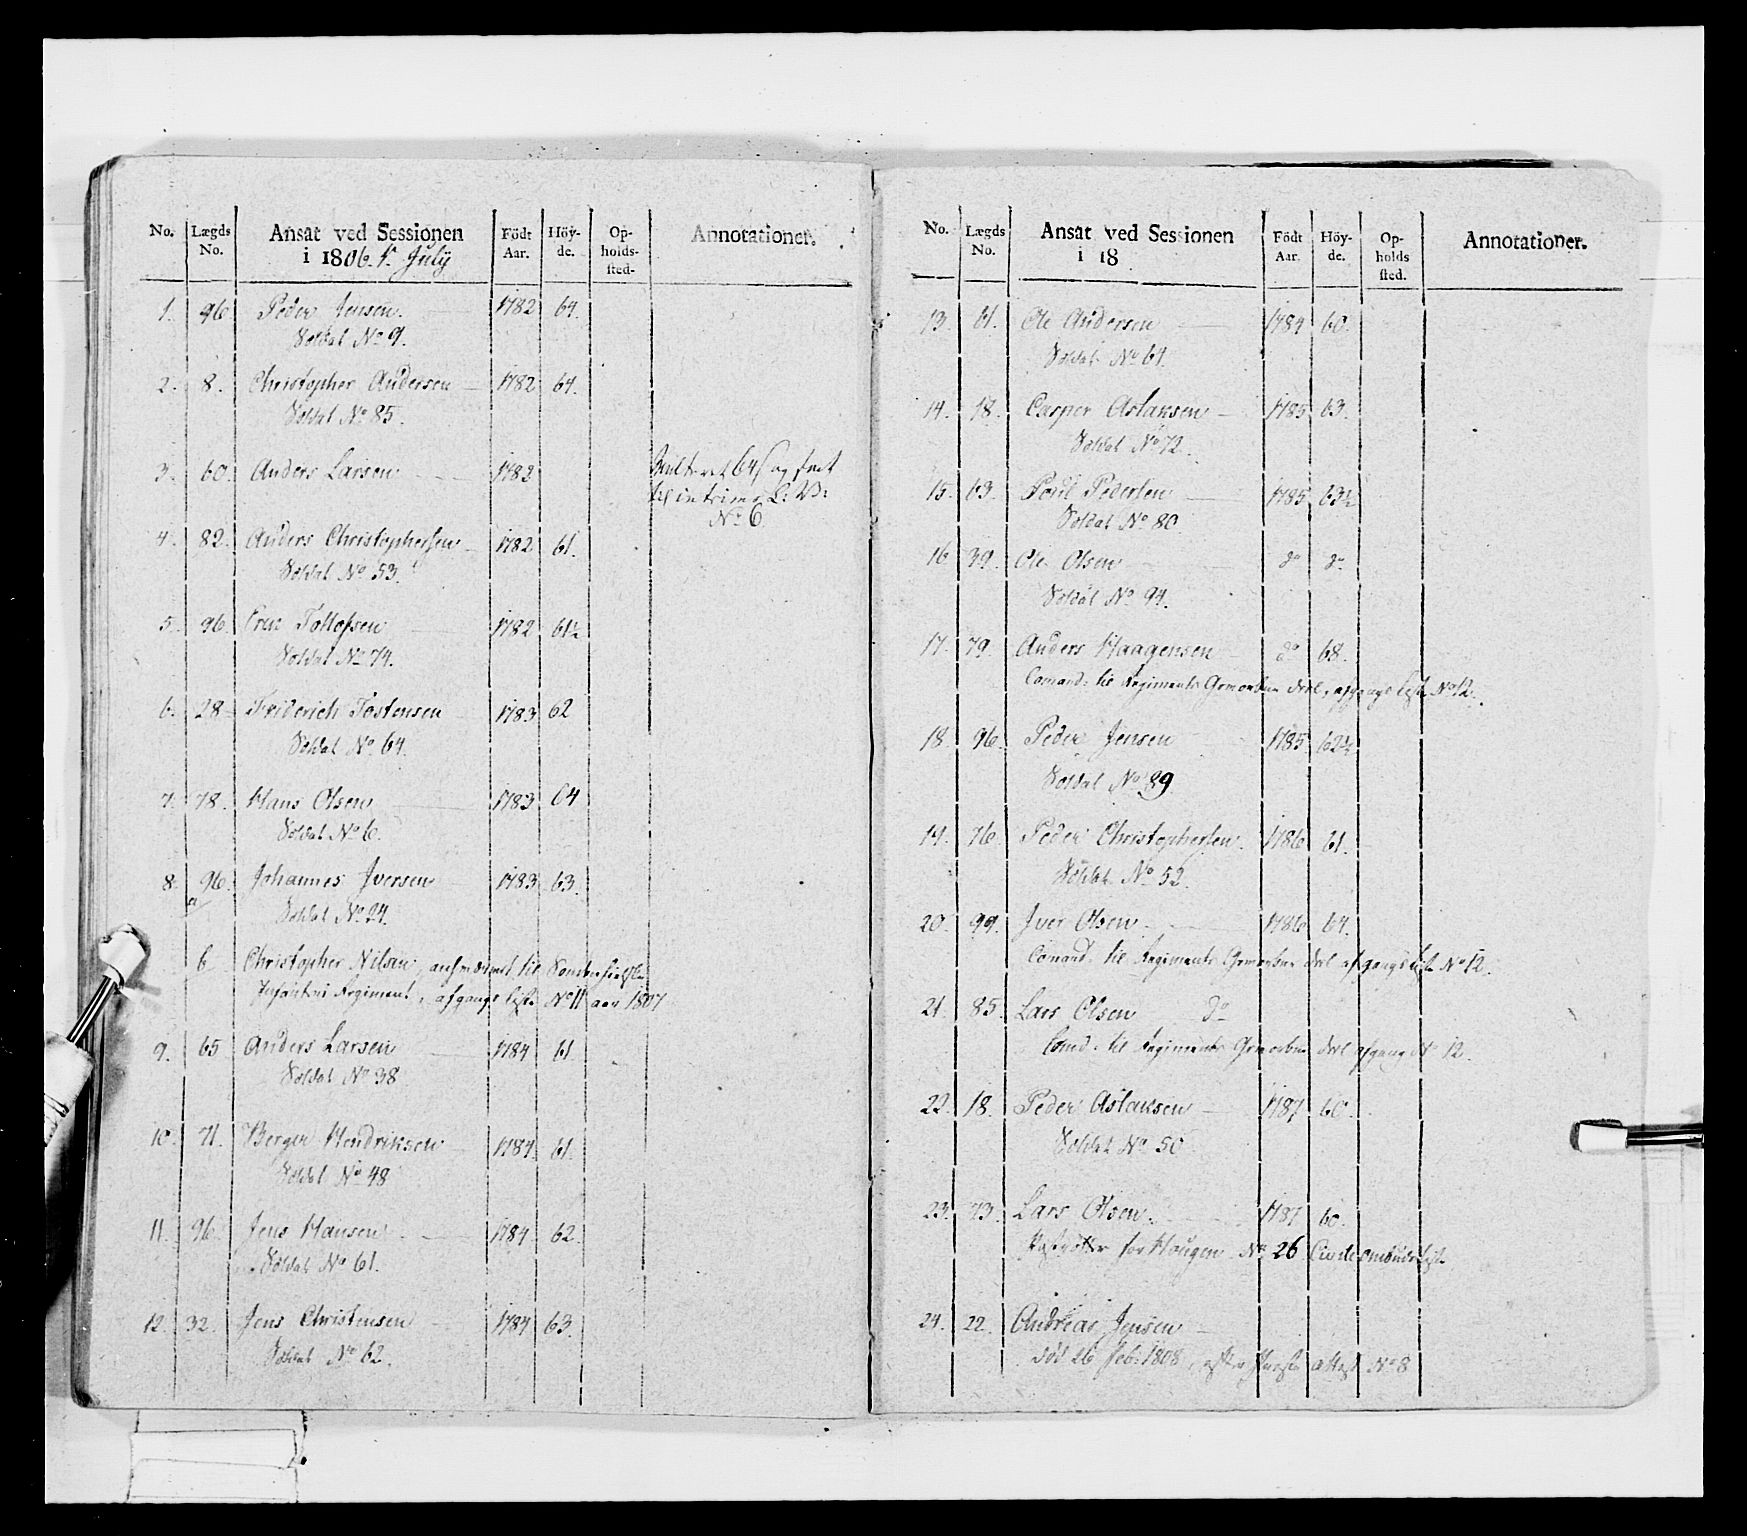 No. Lægds No. Ansat ved Sessionen i 1806. 1. July Födt Aar. Höy-de. Op-holds-sted- Annotationer.
1. 96 Peder Jensen. 1782 64.
Soldat No 9.
2. 8. Christopher Andersen 1782 64.
Soldat No 85.
3. 60. Anders Larsen 1782
64 og sat
til L: V:
No 6.
4. 82. Anders Christophersen 1782 61.
Soldat No 53.
5. 96. Tollefsen 1782 61½
Soldat No 74.
6. 28 Friderich Tostensen 1783 62
Soldat No 64.
7. 78. Hans Olsen 1783 64
Soldat No 6.
8. 96. Johannes Iversen 1783 63.
a/
Soldat No 24.
6 Christopher Nilsen, til Søndenfieldske
Infanteri Regiment, afgangs liste No 11 aar 1807
9. 65 Anders Larsen 1784 61
Soldat No 38
10. 71. Berger Hendriksen 1784. 61.
Soldat No 48
11. 96. Jens Hansen. 1784 62.
Soldat No 61.
12. 32. Jens Christensen 1784 63.
Soldat No 62.
No. Lægds No. Ansat ved Sessionen i 18 Födt Aar. Höy-de. Op-holds sted. Annotationer.
13. 61. Ole Andersen 1784 60.
Soldat No 64.
14. 18. Casper Aslaksen 1785 63.
Soldat No 72.
15. 63. Poul Pedersen 1785 63½
Soldat No 80
16. 39. Ole Olsen do do
Soldat No 94.
17. 79. Anders Haagensen do 68.
Comand: til Regiments afgangs liste No 12.
18. 96. Peder Jensen 1785 62½
Soldat No 89
19. 76. Peder Christophersen. 1786 61.
Soldat No 52.
20. 99. Iver Olsen. 1786 64.
Comand. til Regiments afgangs liste No 12.
21. 85. Lars Olsen do
Comd. til Regiments afgang No 12.
22. 18. Peder Aslaksen 1787 60.
Soldat No 50
23. 73. Lars Olsen. 1787 60.
for Haugen No 26 Civile ombuds liste
24. 22. Andreas Jensen
død 26 feb: 1808, efter attest No 8